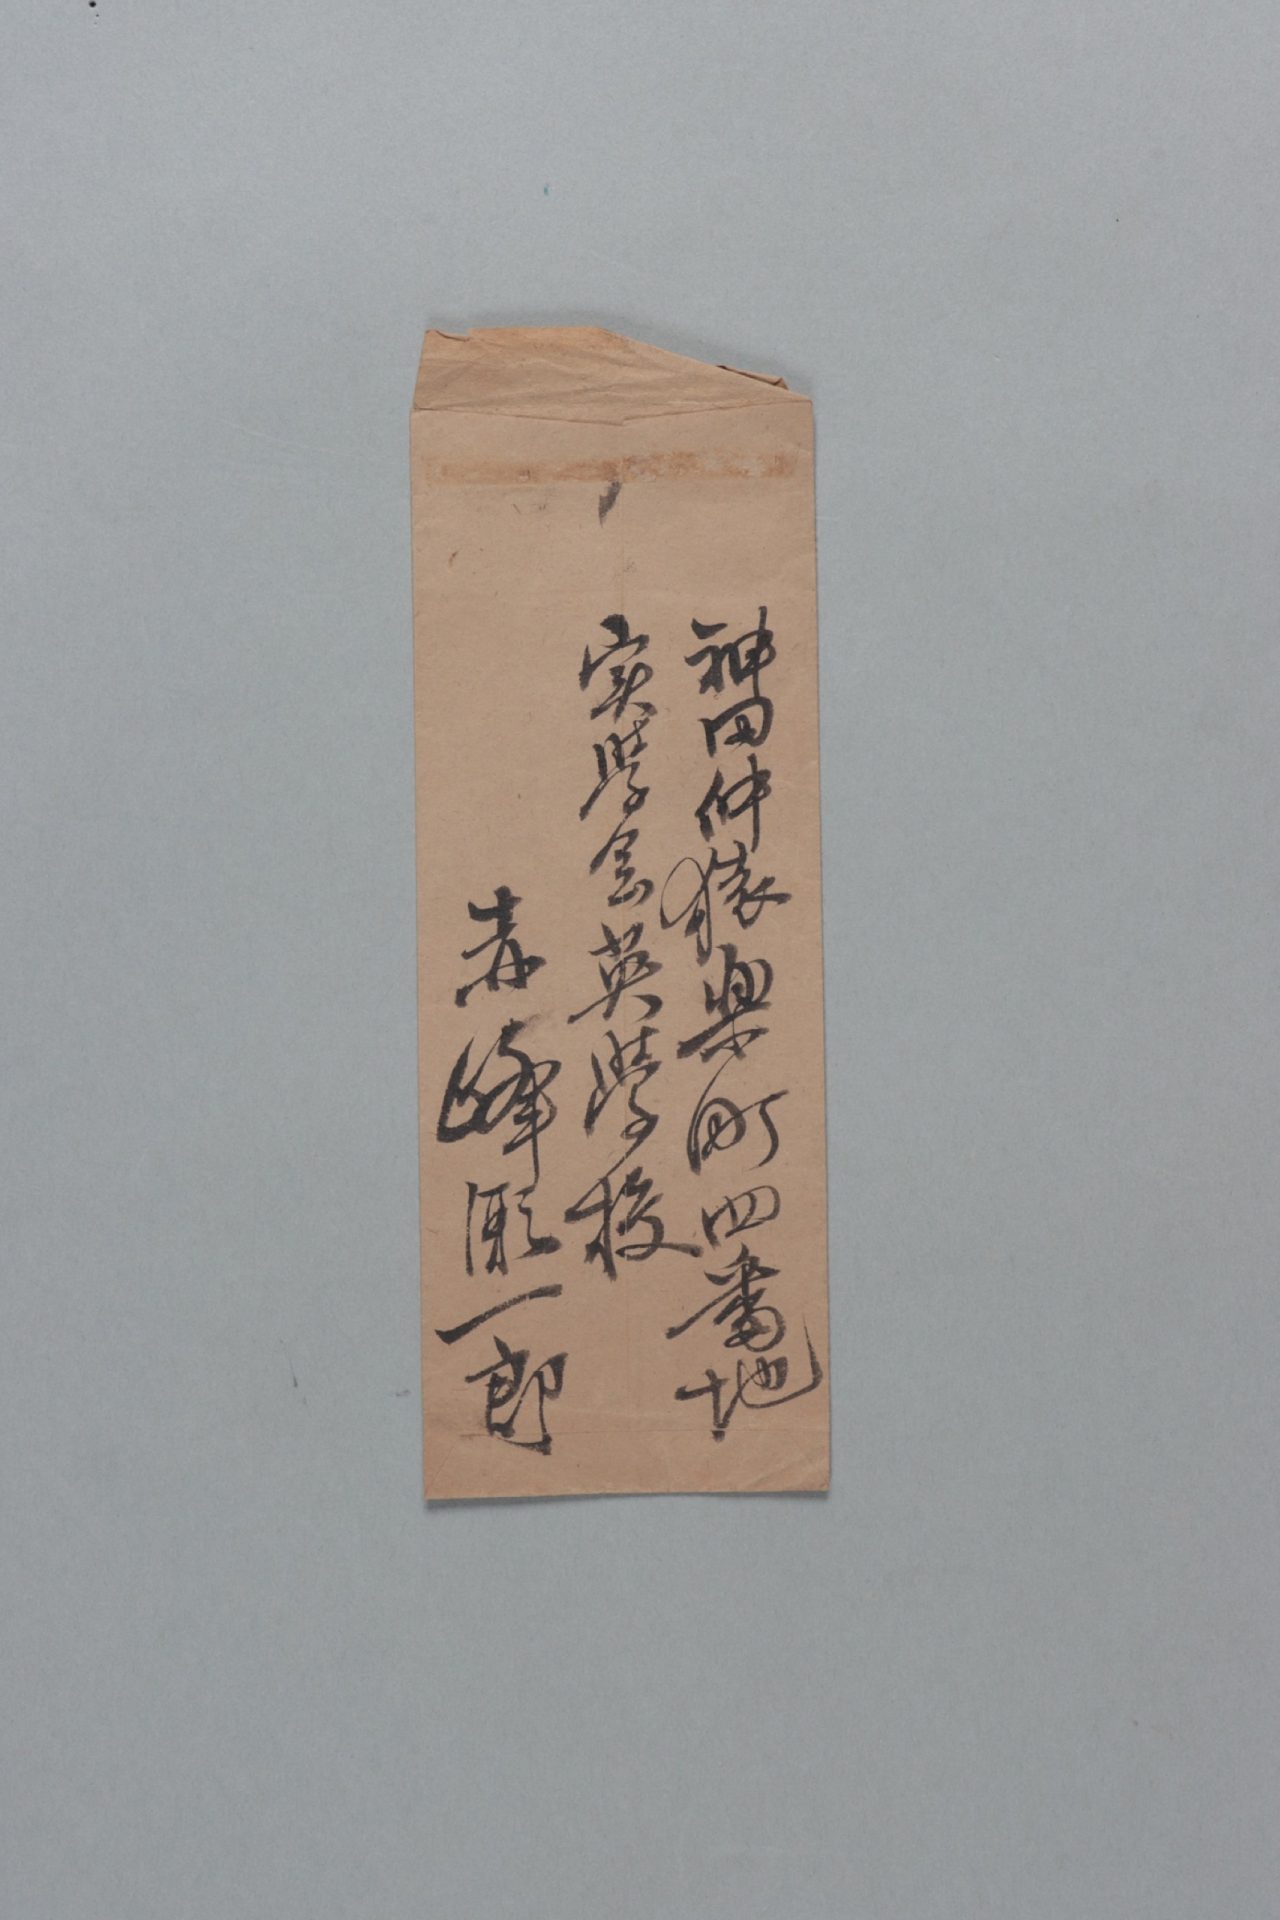 神田仲猿楽町四番地
実学会英学校
赤峰瀬一郎